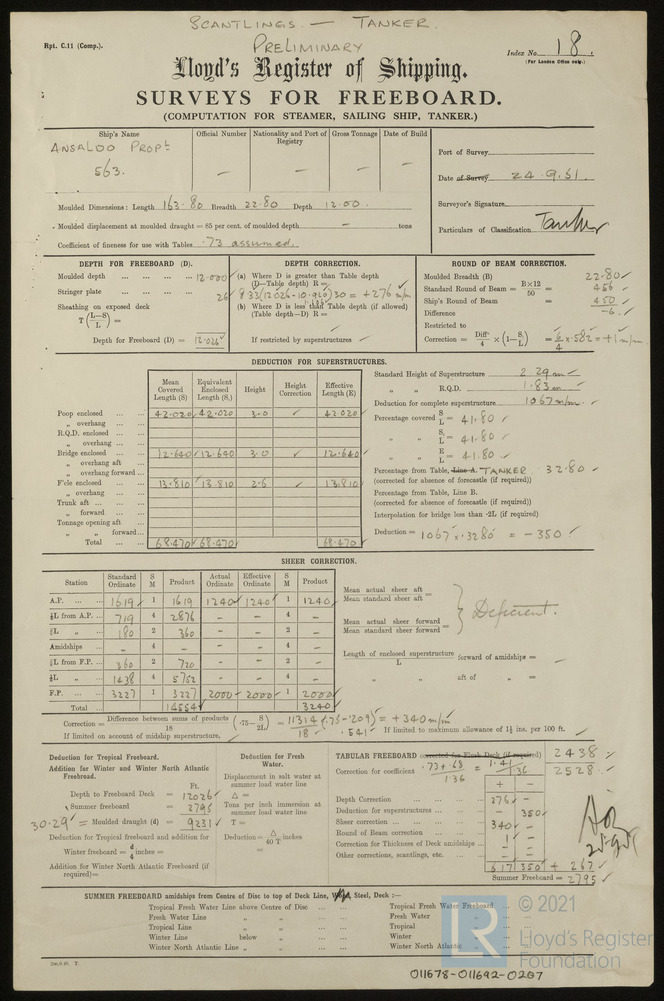 SCANTLINGS — TANKER.
PRELIMINARY
Rpt. C.11 (Comp.).
Index No. 18.
(For London Office only.)
Lloyd's Register of Shipping.
SURVEYS FOR FREEBOARD.
(COMPUTATION FOR STEAMER, SAILING SHIP, TANKER.)
Ship's Name Official Number Nationality and Port of Registry Gross Tonnage Date of Build
ANSALDO PROPL
563. — — — —
Port of Survey
Date of Survey 24.9.51.
Surveyor's Signature
Particulars of Classification Tanker
Moulded Dimensions: Length 163.80 Breadth 22.80 Depth 12.00.
Moulded displacement at moulded draught = 85 per cent. of moulded depth — tons
Coefficient of fineness for use with Tables .73 assumed.
DEPTH FOR FREEBOARD (D).
Moulded depth ... ... ... ... 12.000
Stringer plate ... ... ... ... 26
Sheathing on exposed deck
T (L—S / L) =
Depth for Freeboard (D) = 12.026
DEPTH CORRECTION.
(a) Where D is greater than Table depth
(D—Table depth) R =
8.33(12026-10.920)30 = +276 m/m
(b) Where D is less than Table depth (if allowed)
(Table depth—D) R =
If restricted by superstructures
ROUND OF BEAM CORRECTION.
Moulded Breadth (B) 22.80
Standard Round of Beam = B×12 / 50 = 456
Ship's Round of Beam = 450
Difference -6.
Restricted to
Correction = Diffce / 4 × (1—S₁ / L) = 6/4 × .582 = +1 m/m
DEDUCTION FOR SUPERSTRUCTURES.
Mean Covered Length (S) Equivalent Enclosed Length (S₁) Height Height Correction Effective Length (E)
Poop enclosed ... ... 42.020 42.020 3.0 42.020
„ overhang ... ...
R.Q.D. enclosed ... ...
„ overhang ...
Bridge enclosed ... ... 12.640 12.640 3.0 12.640
„ overhang aft ...
„ overhang forward ...
F'cle enclosed ... ... 13.810 13.810 2.6 13.810
„ overhang ... ...
Trunk aft ... ... ...
„ forward ... ...
Tonnage opening aft
„ „ forward...
Total ... ... 68.470 68.470 68.470
Standard Height of Superstructure 2.29 m
„ „ R.Q.D. 1.83 m
Deduction for complete superstructure 1067 m/m.
Percentage covered S/L = 41.80
„ „ S₁/L = 41.80
„ „ E/L = 41.80
Percentage from Table, Line A. TANKER 32.80
(corrected for absence of forecastle (if required))
Percentage from Table, Line B.
(corrected for absence of forecastle (if required))
Interpolation for bridge less than ·2L (if required)
Deduction = 1067 × .3280 = -350
SHEER CORRECTION.
Station Standard Ordinate S M Product Actual Ordinate Effective Ordinate S M Product
A.P. ... ... 1619 1 1619 1240 1240 1 1240
⅙L from A.P. ... 719 4 2876 - - 4 -
⅓L „ ... 180 2 360 - - 2 -
Amidships ... - 4 - - - 4 -
⅓L from F.P. ... 360 2 720 - - 2 -
⅙L „ ... 1438 4 5752 - - 4 -
F.P. ... ... 3227 1 3227 2000 2000 1 2000
Total ... 14554 3240
Mean actual sheer aft / Mean standard sheer aft =
Mean actual sheer forward / Mean standard sheer forward =
Deficient.
Length of enclosed superstructure / L forward of amidships =
„ „ aft of „ =
Correction = Difference between sums of products / 18 (·75— S/2L) = 11314 / 18 (.75-.209) = +340 m/m
.541
If limited on account of midship superstructure. If limited to maximum allowance of 1½ ins. per 100 ft.
Deduction for Tropical Freeboard.
Addition for Winter and Winter North Atlantic Freeboard.
Ft.
Depth to Freeboard Deck = 12026
Summer freeboard = 2795
30.29' = Moulded draught (d) = 9231
Deduction for Tropical freeboard and addition for
Winter freeboard = d/4 inches =
Addition for Winter North Atlantic Freeboard (if required)=
Deduction for Fresh Water.
Displacement in salt water at summer load water line
Δ =
Tons per inch immersion at summer load water line
T =
Deduction = Δ / 40 T inches
=
TABULAR FREEBOARD corrected for Flush Deck (if required) 2438
Correction for coefficient .73+.68 / 1.36 = 1.41 / 1.36 2528
+ -
Depth Correction ... ... ... 276 -
Deduction for superstructures ... ... 350
Sheer correction ... ... ... 340 -
Round of Beam correction ... ... 1 -
Correction for Thickness of Deck amidships ... - -
Other corrections, scantlings, etc. ... ... - -
617 350 + 267
Summer Freeboard = 2795
SUMMER FREEBOARD amidships from Centre of Disc to top of Deck Line, Steel, Deck :—
Tropical Fresh Water Line above Centre of Disc ... ...
Fresh Water Line „ „ ... ...
Tropical Line „ „ ... ...
Winter Line below „ ... ...
Winter North Atlantic Line „ „ ... ...
Tropical Fresh Water Freeboard
Fresh Water „
Tropical „
Winter „
Winter North Atlantic „
© 2021
LR
Lloyd's Register
Foundation
011678-011692-0207